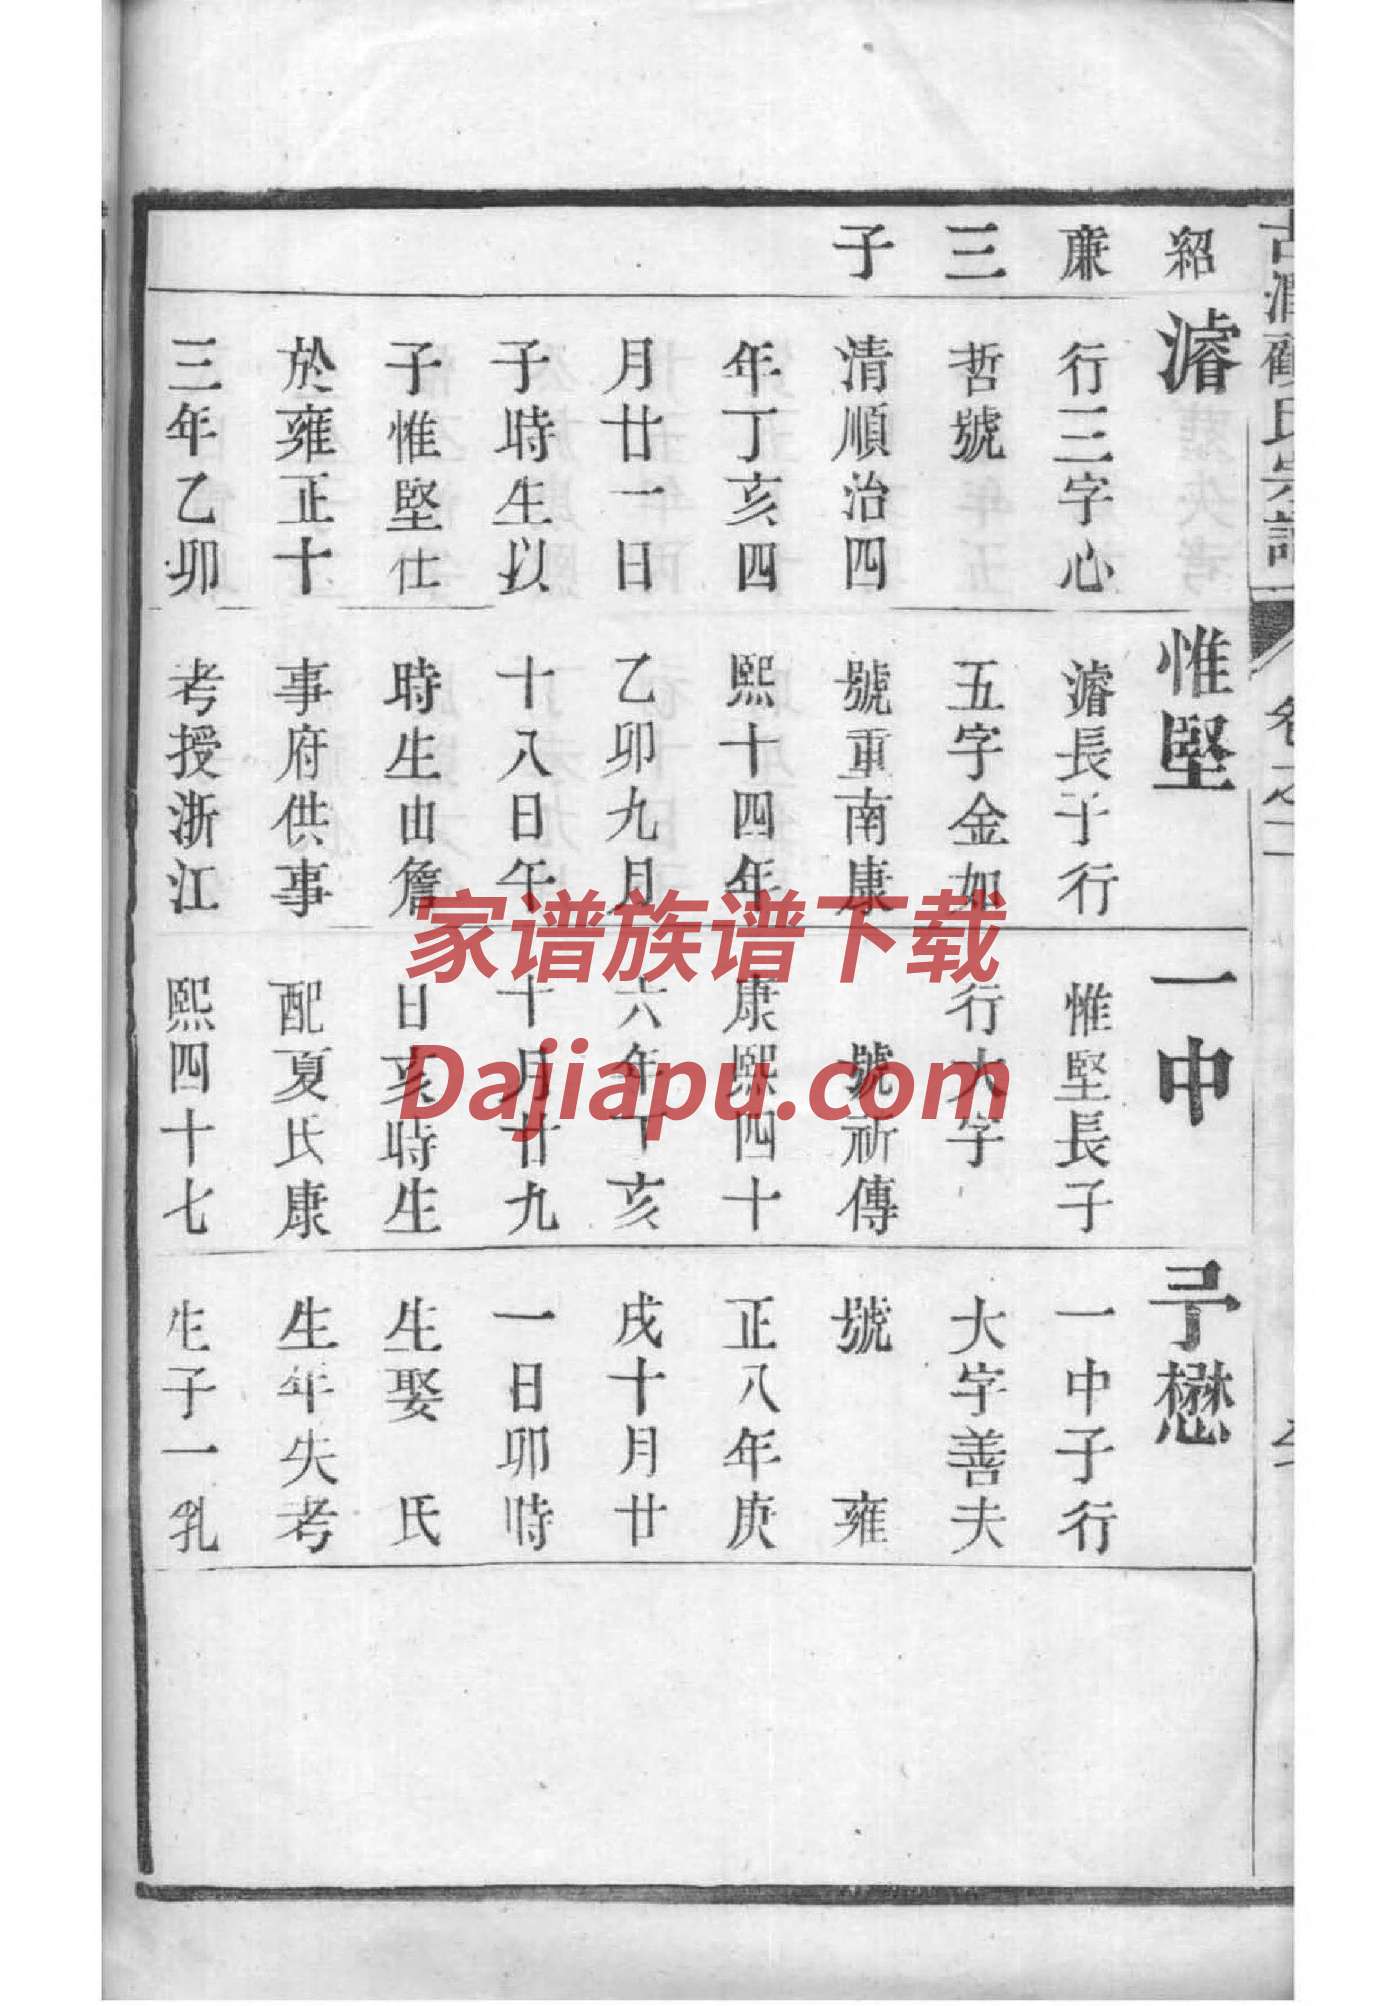 古潤顧氏宗譜
卷之二
紹
廉
三
子
濬
行三字心
哲號
清順治四
年丁亥四
月廿一日
子時生以
子惟堅仕
於雍正十
三年乙卯
惟堅
濬長子行
五字金如
號重南康
熙十四年
乙卯九月
十八日午
時生由詹
事府供事
考授浙江
一中
惟堅長子
行大字
號祈傳
康熙四十
六年丁亥
十月廿九
日亥時生
配夏氏康
熙四十七
予懋
一中子行
大字善夫
號 雍
正八年庚
戌十月廿
一日卯時
生娶 氏
生年失考
生子一乳
家谱族谱下载
Dajiapu.com